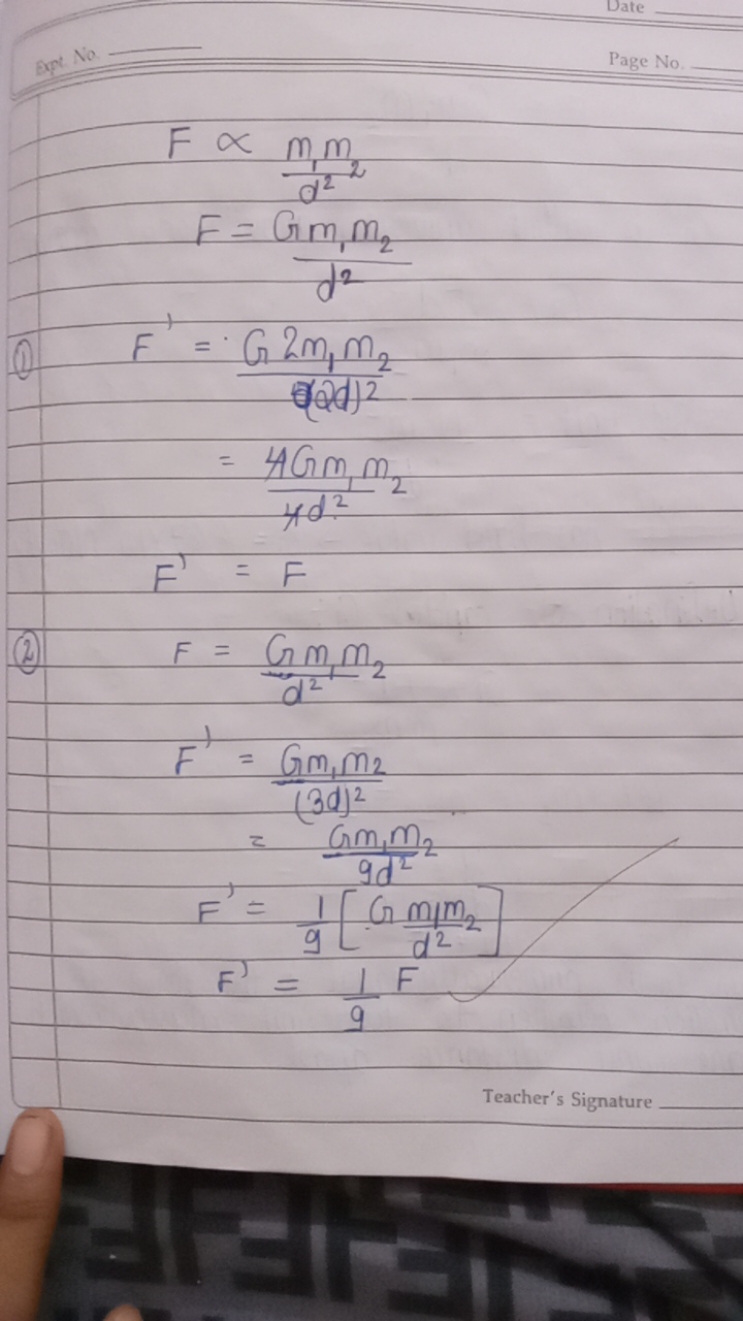 Date
Expt. No.
Page No.
F ∝ m₁m₂/d²
F = Gm₁m₂/d²
① F' = G 2m₁m₂/(2d)²
= 4Gm₁m₂/4d²
F' = F
② F = Gm₁m₂/d²
F' = Gm₁m₂/(3d)²
= Gm₁m₂/9d²
F' = 1/9 [G m₁m₂/d²]
F' = 1/9 F
Teacher's Signature